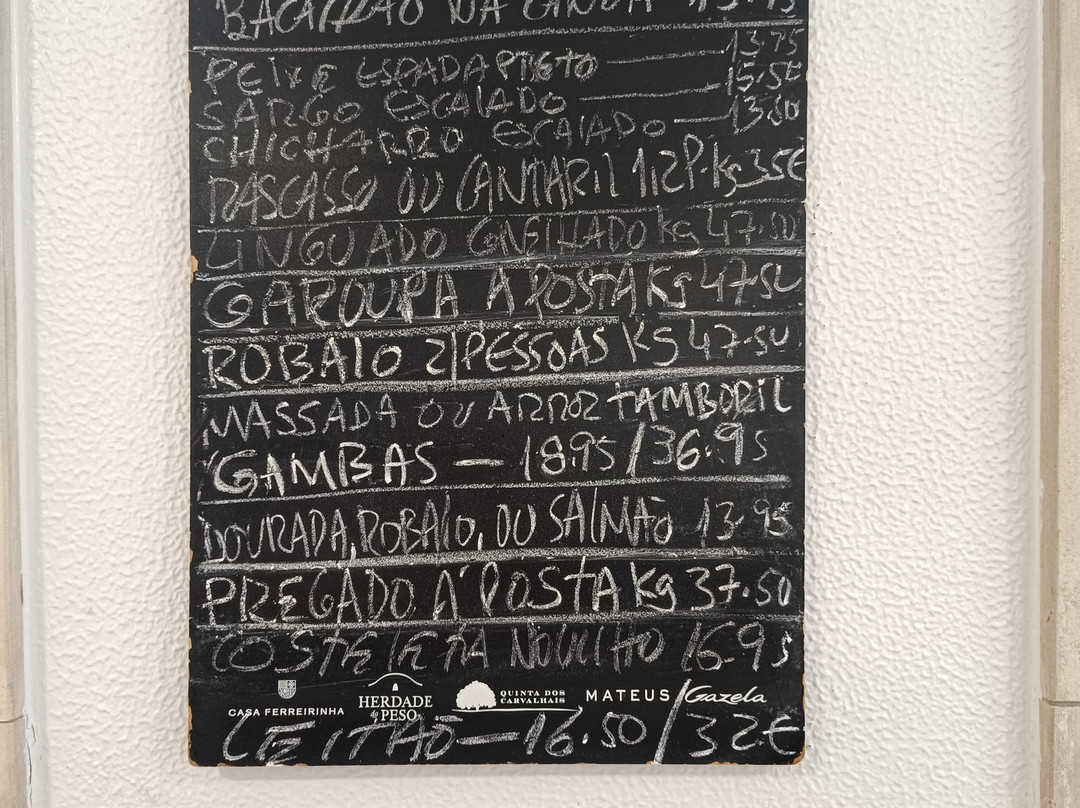 BACALHAO NA CANOA 15.95
PEIXE ESPADA PRETO — 13.75
SARGO ESCALADO — 15.50
CHICHARRO ESCALADO — 13.50
RASCASSO OU CANTARIL 1/2P. Kg 35€
LINGUADO GRELHADO Kg 47.50
GAROUPA A POSTA Kg 47.50
ROBALO 2/PESSOAS KG 47.50
MASSADA OU ARROZ TAMBORIL
GAMBAS — 18.95/36.95
DOURADA, ROBALO, OU SALMÃO 13.95
PREGADO Á POSTA Kg 37.50
COSTELETA NOVILHO 16.95
CASA FERREIRINHA HERDADE do PESO QUINTA DOS CARVALHAIS MATEUS Gazela
LEITÃO — 16.50/32€